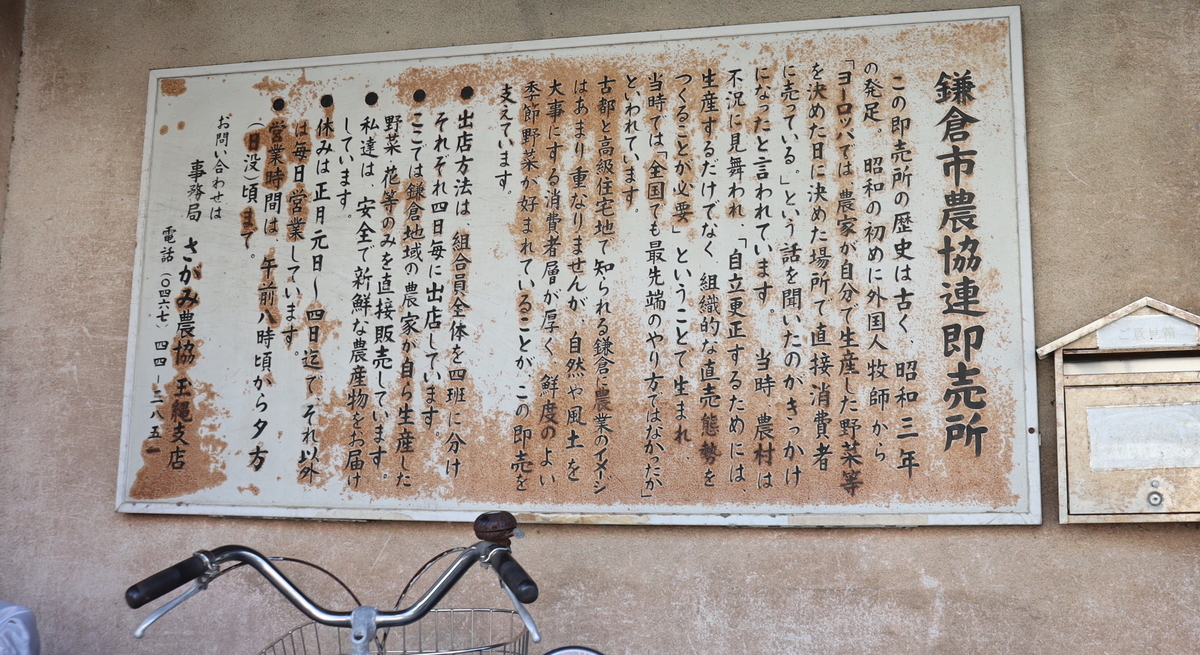 鎌倉市農協連即売所
この即売所の歴史は古く、昭和三年
の発足。昭和の初めに外国人牧師から
「ヨーロッパでは農家が自分で生産した野菜等
を決めた日に決めた場所で直接消費者
に売っている。」という話を聞いたのがきっかけ
になったと言われています。当時、農村は
不況に見舞われ、「自立更正するためには、
生産するだけでなく、組織的な直売態勢を
つくることが必要」ということで生まれ、
当時では「全国でも最先端のやり方ではなかったか」
といわれています。
古都と高級住宅地で知られる鎌倉に農業のイメージ
はあまり重なりませんが、自然や風土を
大事にする消費者層が厚く、鮮度のよい
季節野菜が好まれていることが、この即売を
支えています。
●出店方法は、組合員全体を四班に分け
それぞれ四日毎に出店しています。
●ここでは鎌倉地域の農家が自ら生産した
野菜、花等のみを直接販売しています。
●私達は、安全で新鮮な農産物をお届け
しています。
●休みは正月元日〜四日迄で、それ以外
は毎日営業しています。
●営業時間は、午前八時頃から夕方
(日没)頃まで。
お問い合わせは
事務局 さがみ農協 玉縄支店
電話(〇四六七)四四ー三八五一
ご意見箱